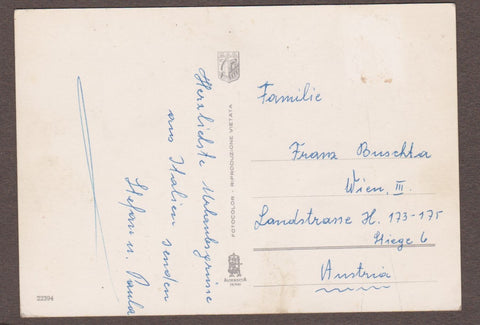 Herzlichste Urlaubsgrüsse
aus Italien senden
Stefan u. Paula
FOTOCOLOR - RIPRODUZIONE VIETATA
Familie
Franz Buschta
Wien, III.
Landstrasse H. 173-175
Stiege 6
Austria
22394